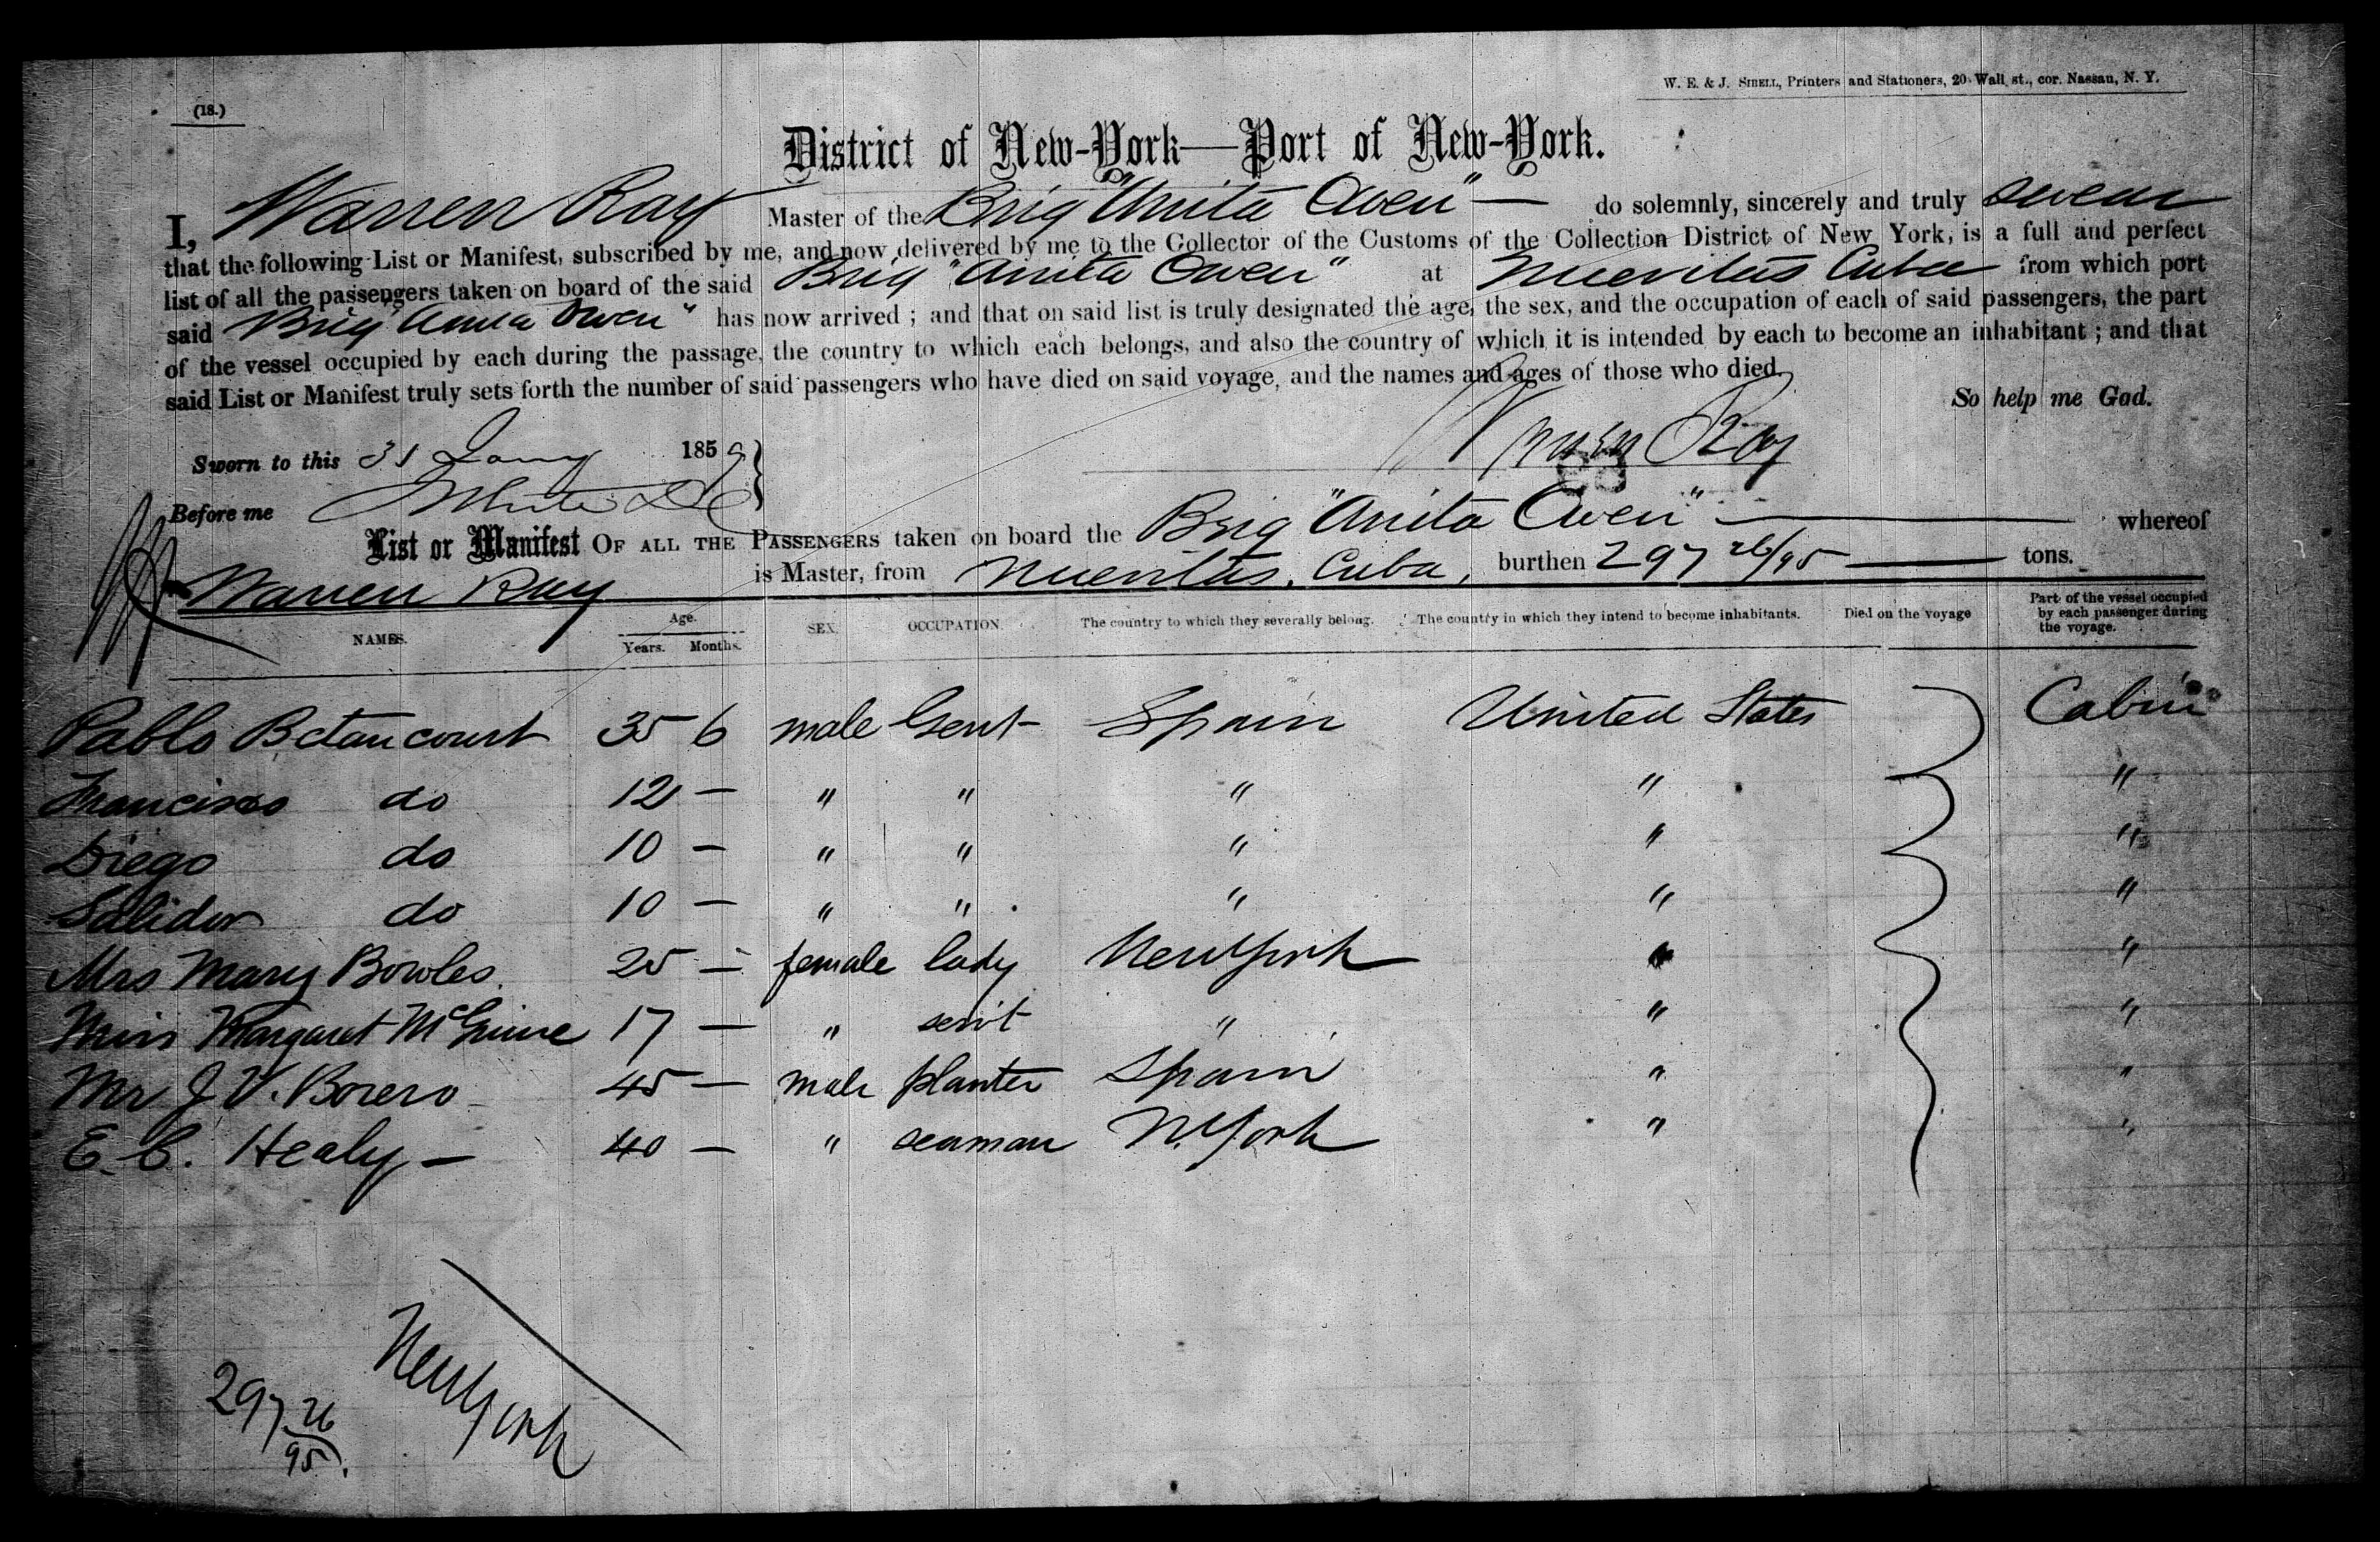 W. E. & J. Sibell, Printers and Stationers, 20 Wall st., cor. Nassau, N. Y.
(18.)
District of New-York—Port of New-York.
I, Warren Ray Master of the Brig "Anita Owen" — do solemnly, sincerely and truly swear
that the following List or Manifest, subscribed by me, and now delivered by me to the Collector of the Customs of the Collection District of New York, is a full and perfect
list of all the passengers taken on board of the said Brig "Anita Owen" at Nuevitas Cuba from which port
said Brig "Anita Owen" has now arrived ; and that on said list is truly designated the age, the sex, and the occupation of each of said passengers, the part
of the vessel occupied by each during the passage, the country to which each belongs, and also the country of which it is intended by each to become an inhabitant ; and that
said List or Manifest truly sets forth the number of said passengers who have died on said voyage, and the names and ages of those who died.
So help me God.
Warren Ray
Sworn to this 31 Jany 1859
Before me
List or Manifest OF ALL THE PASSENGERS taken on board the Brig "Anita Owen" — whereof
Warren Ray is Master, from Nuevitas, Cuba, burthen 297 26/95 — tons.
NAMES. Age. Years. Months. SEX. OCCUPATION. The country to which they severally belong. The country in which they intend to become inhabitants. Died on the voyage Part of the vessel occupied by each passenger during the voyage.
Pablo Betancourt 35 6 male Gent Spain United States Cabin
Francisco do 12 — " " " " "
Diego do 10 — " " " " "
do 10 — " " " " "
Mrs Mary Bowles. 25 — female lady New York " "
Miss Margaret McGuire 17 — " servt " " "
Mr J. V. Borero 45 — male planter Spain " "
E. C. Healy — 40 — " seaman N. York " "
New York
297 26/95.